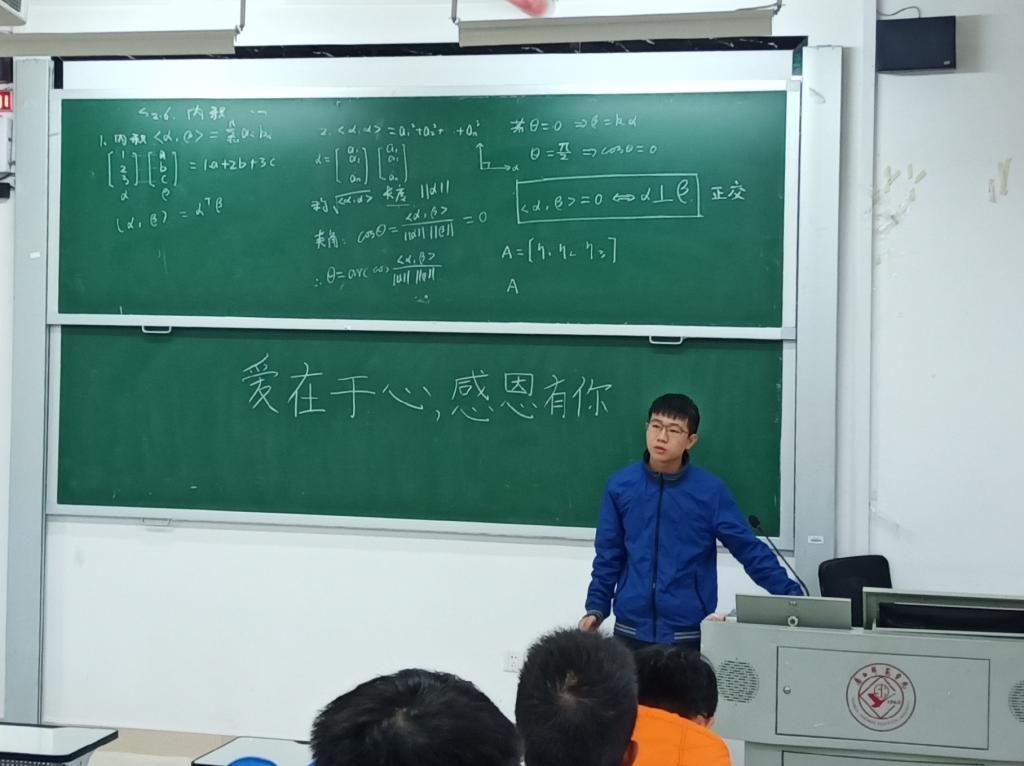 §2.6. 内积
1. 内积 <α, β> = Σ aᵢbᵢ
[1 2 3] [a b c] = 1a+2b+3c
α β
(α, β) = αᵀβ
2. <α, α> = a₁²+a₂²+ +aₙ²
α = [a₁ a₂ aₙ] [a₁ a₂ aₙ]
称 √<α,α> 长度 ||α||
夹角: cosθ = <α, β> / ||α|| ||β|| = 0
∴ θ = arc cos <α, β> / ||α|| ||β||
若 θ=0 ⇒ β=kα
θ = π/2 ⇒ cosθ=0
α
<α, β> = 0 ⇔ α⊥β. 正交
A = [η₁ η₂ η₃]
A
爱在于心,感恩有你